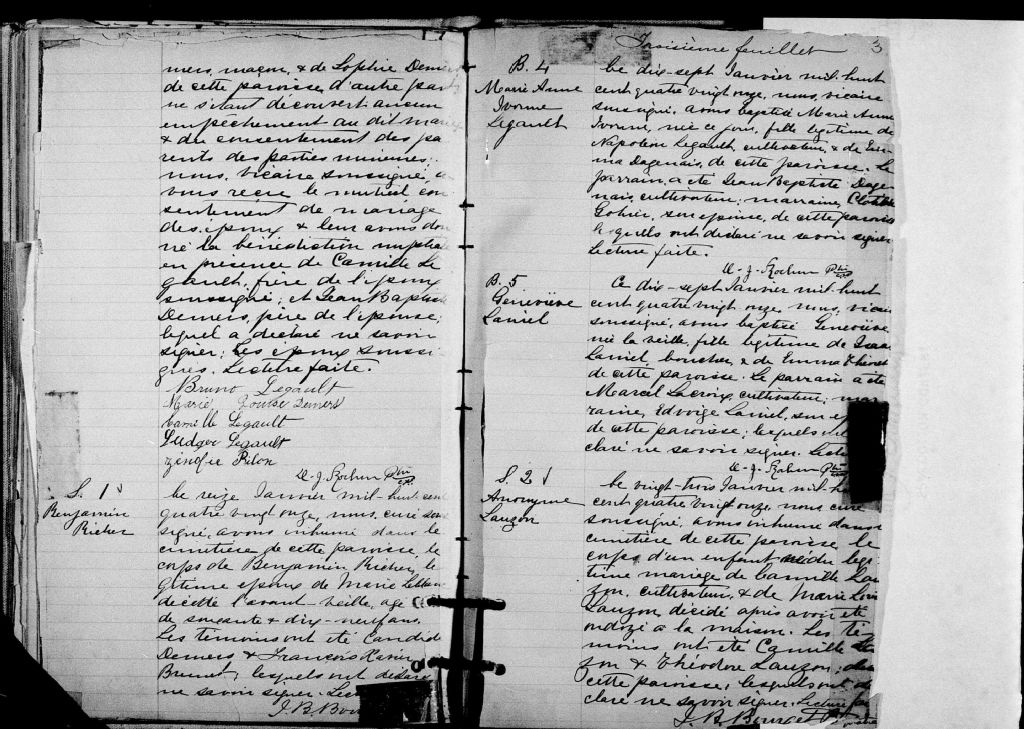 mers, maçon, & de Sophie Demers
de cette paroisse, d'autre part
ne s'étant découvert aucun
empêchement au dit maria
& du consentement des pa
rents des parties mineures;
nous, vicaire soussigné, a
vons reçu le mutuel con
sentement de mariage
des époux & leur avons don
né la bénédiction nuptia
en présence de Camille Le
gault, frère de l'époux
soussigné, et Jean Baptiste
Demers, père de l'épouse,
lequel a déclaré ne savoir
signer; les époux soussi-
gnés. Lecture faite.
Bruno Legault
Marie Louise Demers
Camille Legault
Ludger Legault
Pilon
S. 1
Benjamin
Richer
Le seize Janvier mil-huit cent
quatre vingt onze, nous, curé sous
signé, avons inhumé dans le
cimetière de cette paroisse, le
corps de Benjamin Richer, lé
gitime époux de Marie
décédé l'avant veille, agé
de soixante & dix-neuf ans.
Les témoins ont été Candide
Demers & François Xavier
Brunet, lesquels ont déclaré
ne savoir signer. Lec
J. B. Bou
Troisième feuillet
3
B. 4
Marie Anne
Ivonne
Legault
Le dix-sept Janvier mil-huit
cent quatre vingt onze, nous, vicaire
soussigné, avons baptisé Marie Anne
Ivonne, née ce jour, fille légitime de
Napoléon Legault, cultivateur, & de Em-
ma Dagenais, de cette paroisse. Le
parrain a été Jean Baptiste Dage
nais, cultivateur; marraine, Clotilde
Gohier, son épouse, de cette paroisse
lesquels ont déclaré ne savoir signer
Lecture faite.
B. 5
Geneviève
Laniel
Ce dix-sept Janvier mil-huit
cent quatre vingt onze, nous, vicai
soussigné, avons baptisé Geneviève
née la veille, fille légitime de Isaac
Laniel, boucher, & de Emma
de cette paroisse. Le parrain a été
Marcel Lacroix, cultivateur; mar
raine, Edwige Laniel, son é
de cette paroisse; lesquels ont
claré ne savoir signer. Lectu
S. 2
Anonyme
Lauzon
Le vingt-trois Janvier mil-h
cent quatre vingt onze, nous curé
soussigné, avons inhumé dans
cimetière de cette paroisse, le
corps d'un enfant né du légi
time mariage de Camille Lau
zon, cultivateur, & de Marie
Lauzon décédé après avoir été
ondoyé à la maison. Les té
moins ont été Camille Lau
zon & Théodore Lauzon, de
cette paroisse, lesquels ont dé
claré ne savoir signer. Lecture fai
J. B. Bourget Ptre